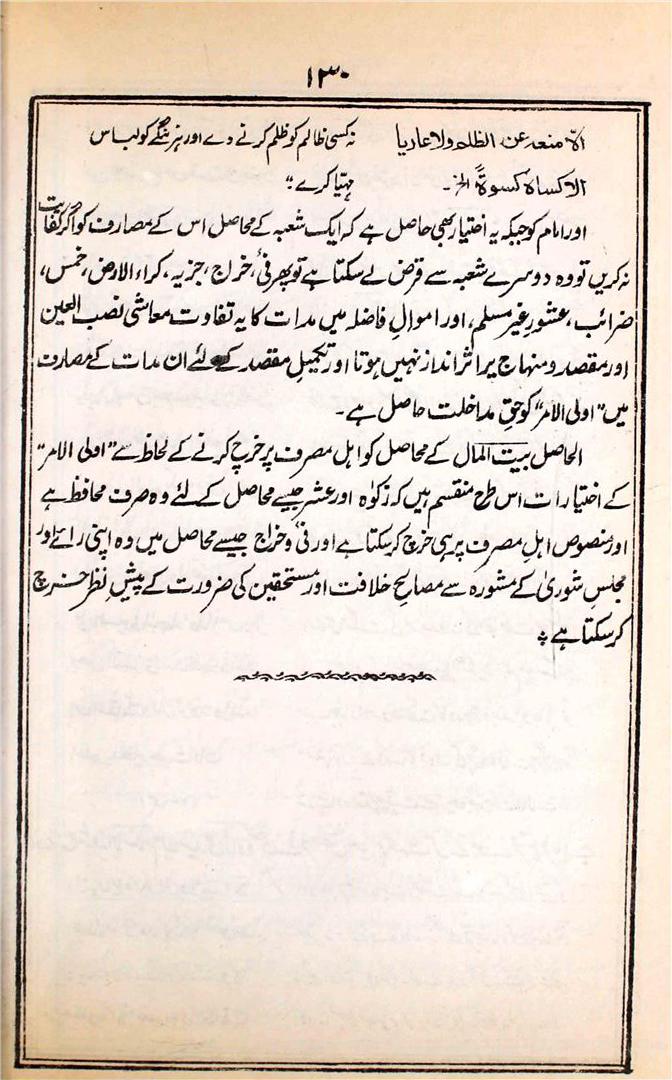 ۱۳۰
الّا منعه عن الظلم ولا عاریا نہ کسی ظالم کو ظلم کرنے دے اور نہ ننگے کو لباس
الا کساہ کسوۃً الخ۔ مہیّا کرے؛"
اور امام کو جبکہ یہ اختیار بھی حاصل ہے کہ ایک شعبہ کے محاصل اس کے مصارف کو اگر کفایت
نہ کریں تو وہ دوسرے شعبہ سے قرض لے سکتا ہے تو پھر فئ، خراج، جزیہ، کراء الارض، خمس،
ضرائب، عشورِ غیر مسلم، اور اموالِ فاضلہ میں مدات کا یہ تفاوت معاشی نصب العین
اور مقصد و منہاج پر اثر انداز نہیں ہوتا اور تکمیلِ مقصد کے لئے ان مدات کے مصارف
میں "اولی الامر" کو حقِ مداخلت حاصل ہے۔
الحاصل بیت المال کے محاصل کو اہل مصرف پر خرچ کرنے کے لحاظ سے "اولی الامر"
کے اختیارات اس طرح منقسم ہیں کہ زکوٰۃ اور عشر جیسے محاصل کے لئے وہ صرف محافظ ہے
اور منصوص اہلِ مصرف پر ہی خرچ کر سکتا ہے اور فئ و خراج جیسے محاصل میں وہ اپنی رائے اور
مجلسِ شوریٰ کے مشورہ سے مصالحِ خلافت اور مستحقین کی ضرورت کے پیشِ نظر خرچ
کر سکتا ہے؛